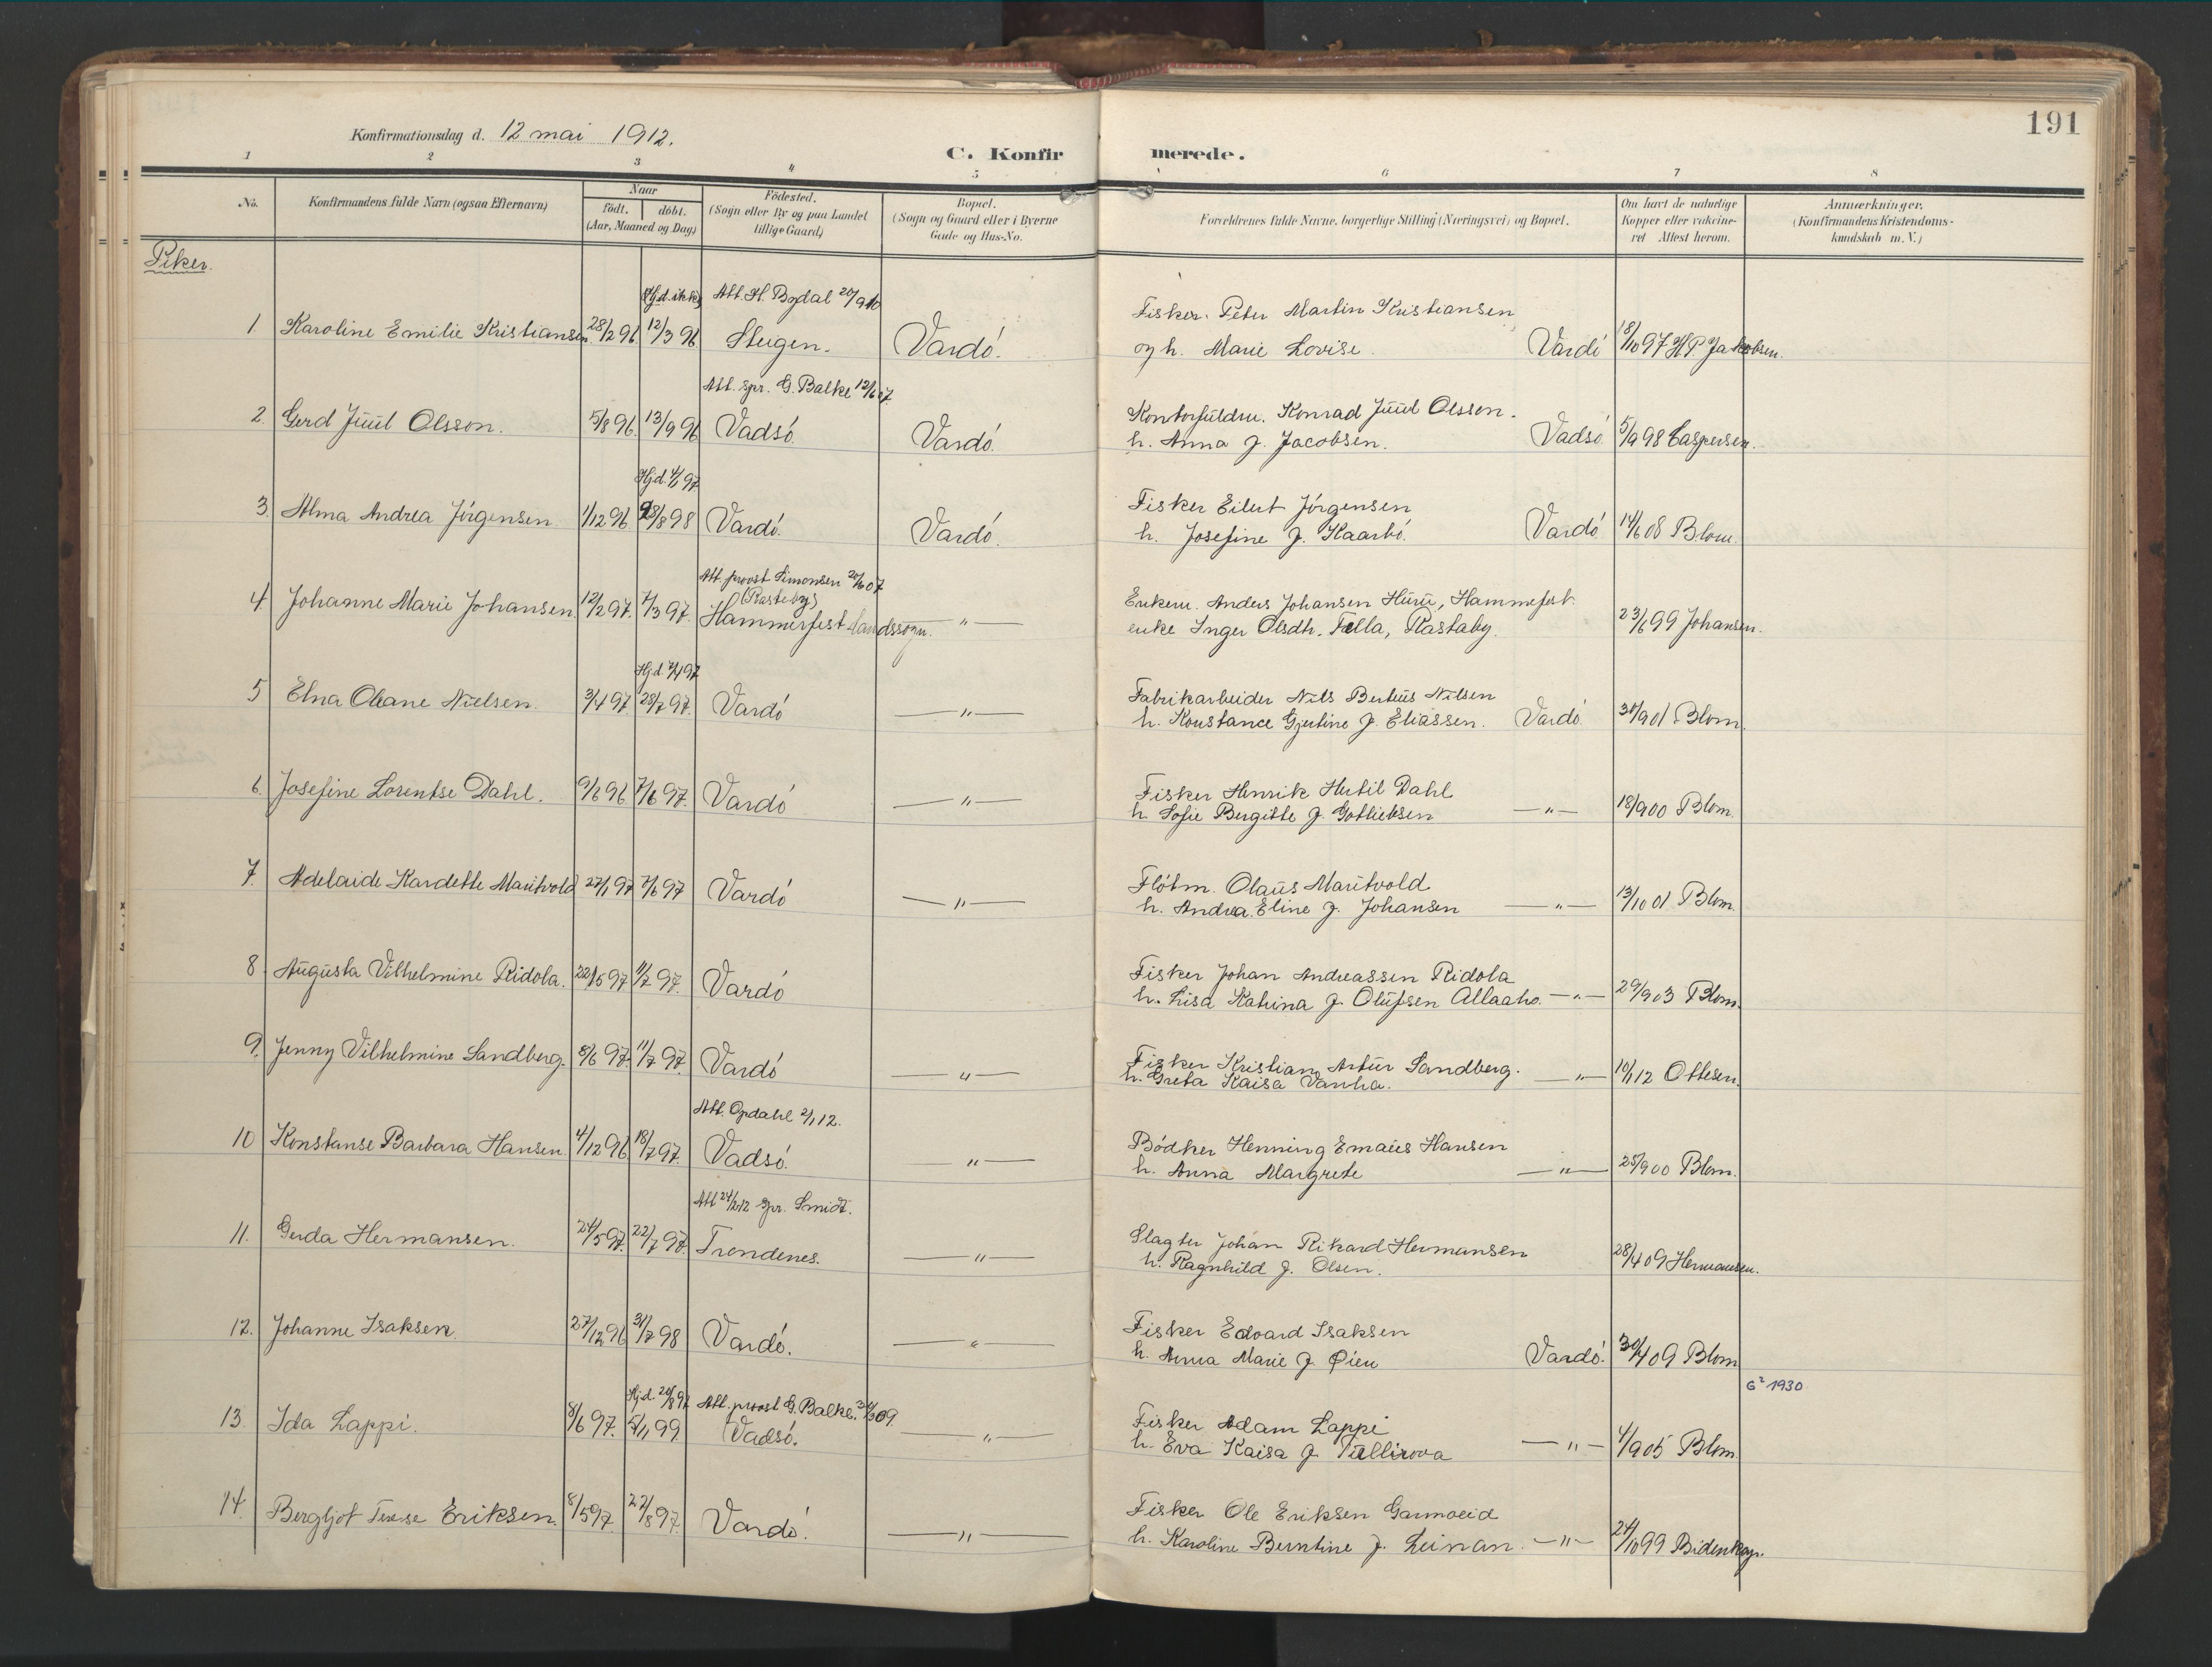 191
Konfirmationsdag d. 12 mai 1912.
C. Konfirmerede.
1 2 3 4 5 6 7 8
No.
Konfirmandens fulde Navn (ogsaa Efternavn)
Naar
födt. | döbt.
(Aar, Maaned og Dag)
Födested.
(Sogn eller By og paa Landet
tillige Gaard)
Bopæl.
(Sogn og Gaard eller i Byerne
Gade og Hus-No.
Forældrenes fulde Navne, borgerlige Stilling (Næringsvei) og Bopæl.
Om havt de naturlige
Kopper eller vakcine-
ret Attest herom.
Anmærkninger.
(Konfirmandens Kristendoms-
kundskab m. V.)
Piker.
Hjd. ikke Att. H. Bydal 20/9 10
1. Karoline Emilie Kristiansen. 28/2 96. 12/3 96 Steigen. Vardö.
Fisker. Peter Martin Kristiansen
og h. Marie Lovise. Vardö 18/10 97 H.P. Jakobsen.
Att. spr. G. Balke 12/6 07.
2. Gerd Juul Olsson. 5/8 96. 13/9 96 Vadsö Vardö.
Kontorfuldm. Konrad Juul Olsson.
h. Anna f. Jacobsen. Vadsö 5/9 98 Caspersen.
Hjd. 4/1 97
3. Alma Andrea Jörgensen 1/12 96 28/8 98 Vardö. Vardö.
Fisker Eilert Jörgensen
h. Josefine f. Kaarbö. Vardö 14/6 08 Blom.
Att. provst Simonsen 20/6 07
(Rasteby)
4. Johanne Marie Johansen 12/2 97. 7/3 97. Hammerfest landssogn. — " —
Enkem. Anders Johansen Huru, Hammerfest.
enke Inger Olsdtr. Fella, Rastaby. 23/6 99 Johansen.
Hjd. 7/4 97
5 Elna Oleane Nielsen. 3/4 97. 28/7 97. Vardö — " —
Fabrikarbeider Nils Berteus Nilsen
h. Konstance Gjertine f. Eliassen. Vardö 30/9 01 Blom.
6. Josefine Lorentse Dahl. 9/6 96 7/6 97. Vardö — " —
Fisker Henrik Hertil Dahl
h. Sofie Bergitte f. Gotliebsen — " — 18/9 00 Blom.
7. Adelaide Kardette Mautvold 27/1 97 7/6 97 Vardö — " —
Flötm. Olaus Mautvold
h. Andrea Eline f. Johansen — " — 13/10 01 Blom.
8. Augusta Vilhelmine Ridola. 22/5 97 11/7 97. Vardö
Fisker Johan Andreassen Ridola
h. Lisa Katrina f. Olufsen Allaaho. — " — 29/9 03 Blom.
9. Jenny Vilhelmine Sandberg. 8/6 97. 11/7 97. Vardö — " —
Fisker Kristian Artur Sandberg.
h. Greta Kaisa Vanha. — " — 10/1 12 Ottesen.
Att. Opdahl 2/1 12.
10 Konstanse Barbara Hansen. 4/12 96 18/7 97. Vadsö. — " —
Bödker Henning Emaus Hansen
h. Anna Margrete — " — 25/9 00 Blom.
Att 24/2 12 spr. Smidt.
11. Gerda Hermansen. 24/5 97. 22/7 97. Trondenes. — " —
Slagter Johan Rikard Hermansen
h. Ragnhild f. Olsen. 28/4 09 Hermansen.
12. Johanne Isaksen. 27/12 96 31/7 98 Vardö. — " —
Fisker Edvard Isaksen
h. Anna Marie f. Øien Vardö. 30/4 09 Blom
G² 1930
Hjd. 20/8 97 Att. provst G. Balke. 09.
13. Ida Lappi. 8/6 97. 5/11 99. Vadsö. — " —
Fisker Adam Lappi
h. Eva Kaisa f. — " — 4/9 05 Blom
14. Bergljot Terese Eriksen. 8/5 97. 22/8 97. Vardö. — " —
Fisker Ole Eriksen Garnoeid
h. Karoline Berntine f. Leinan. — " — 24/10 99 Bidenkap.